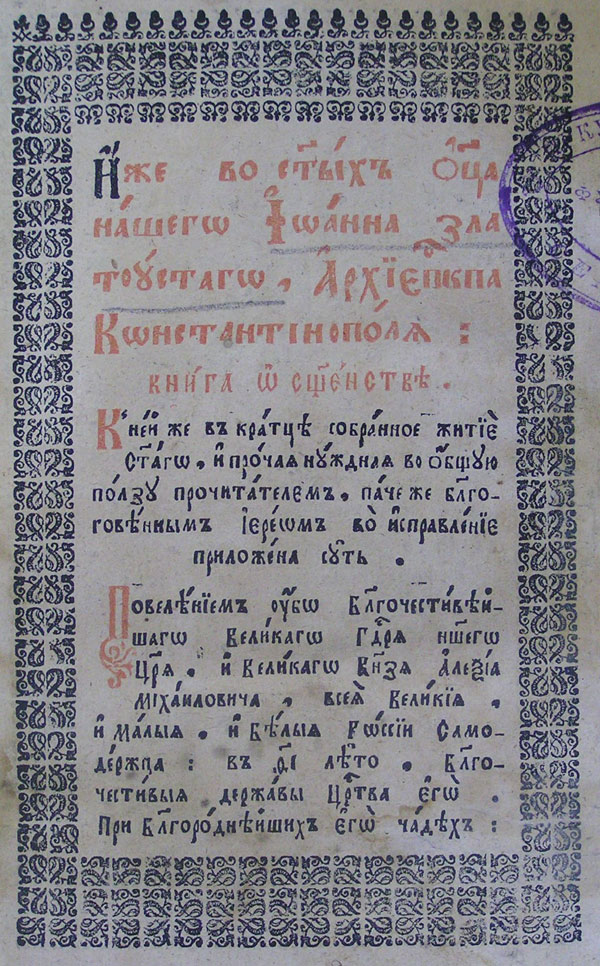 И҆́же во ст҃ы́хъ ѻ҆ц҃а̀
на́шегѡ І҆ѡа́нна зла
тоꙋ́стагѡ, А҆рхїєпⷭ҇кпа
Кѡнстантїнопо́лѧ :
книга ѡ҆ сщ҃е́нствѣ .
К̾ не́й же въ кра́тцѣ собра́нное житїѐ
ст҃а́гѡ, и҆ про́чаѧ нꙋ́ждная во ѻ҆́бщꙋю
по́лзꙋ прочита́телемъ, па́че же бл҃го-
говѣ́ннымъ і҆ере́ѡмъ во̀ и҆справле́нїе
приложе́на сꙋ́ть .
Повелѣ́нїемъ ᲂу҆́бѡ Бл҃гочести́вѣй-
шагѡ Вели́кагѡ Гдⷭ҇рѧ н҃шегѡ
Цр҃ѧ̀, и҆ вели́кагѡ Кн҃зѧ А҆леѯі́а
міха́иловича, всеѧ̀ вели́кїѧ,
и҆ ма́лыѧ, и҆ Бѣ́лыѧ Рѡ́ссїи Само-
де́ржца : въ лѣ́то, Бл҃го-
чести́выѧ держа́вы Црⷭ҇тва є҆гѡ̀ .
При Бл҃горо́днѣйшихъ є҆гѡ̀ ча́дѣхъ :